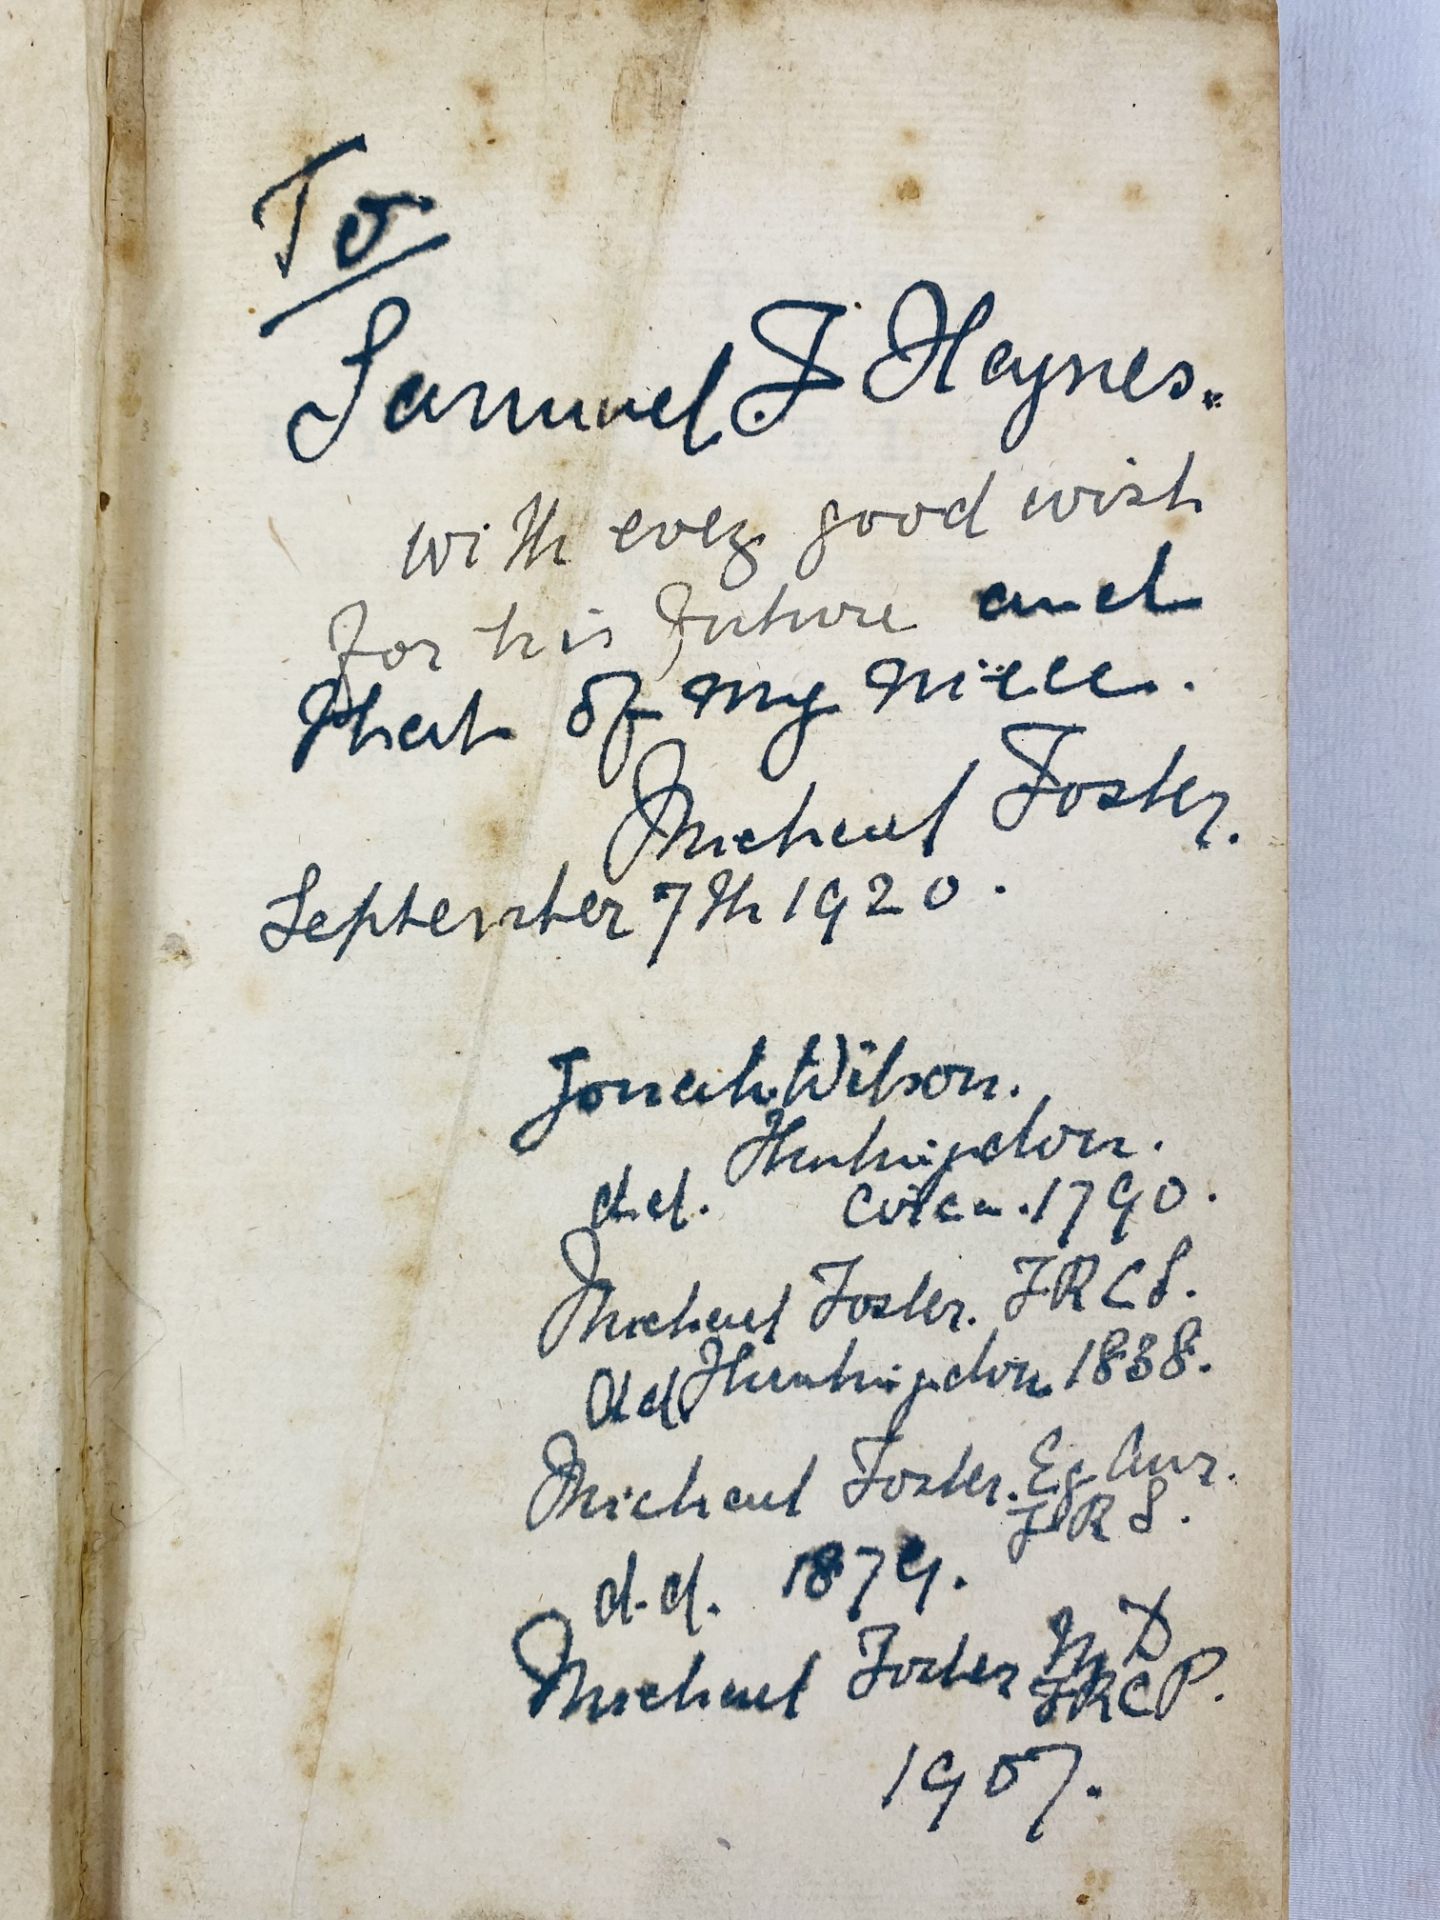 To
Samuel F Haynes.
with every good wish
for his future and
that of my niece.
Michael Foster.
September 7th 1920.
Jonah Wilson.
Huntingdon.
d.d. Circa. 1790.
Michael Foster. FRCS.
dd Huntingdon 1838.
Michael Foster. Eq Aur.
FRS.
d.d. 1879.
Michael Foster MD
FRCP.
1907.